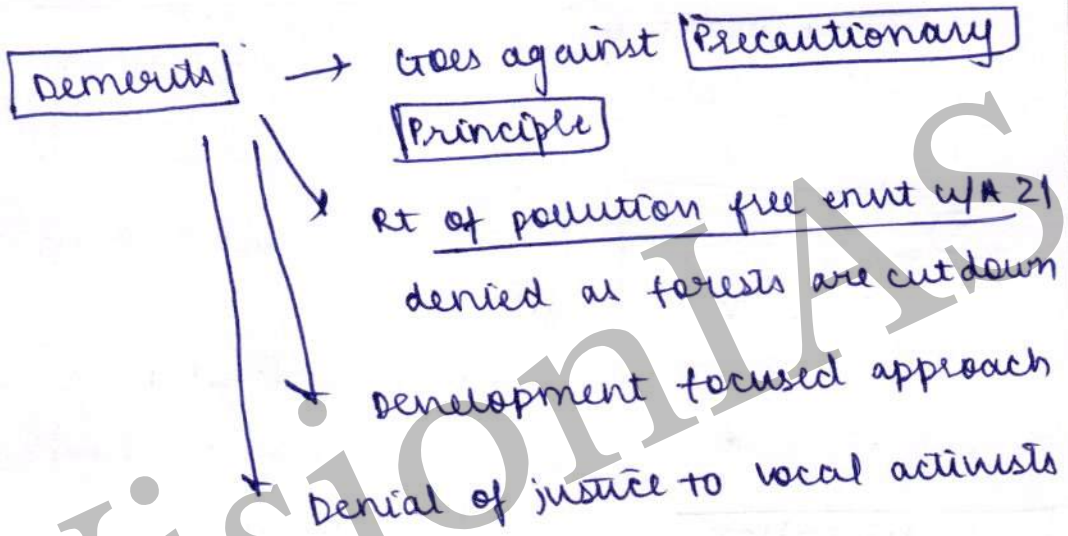 Demerits → Goes against Precautionary
Principle
Rt of pollution free envt u/A 21
denied as forests are cutdown
Development focused approach
Denial of justice to vocal activists
VisionIAS